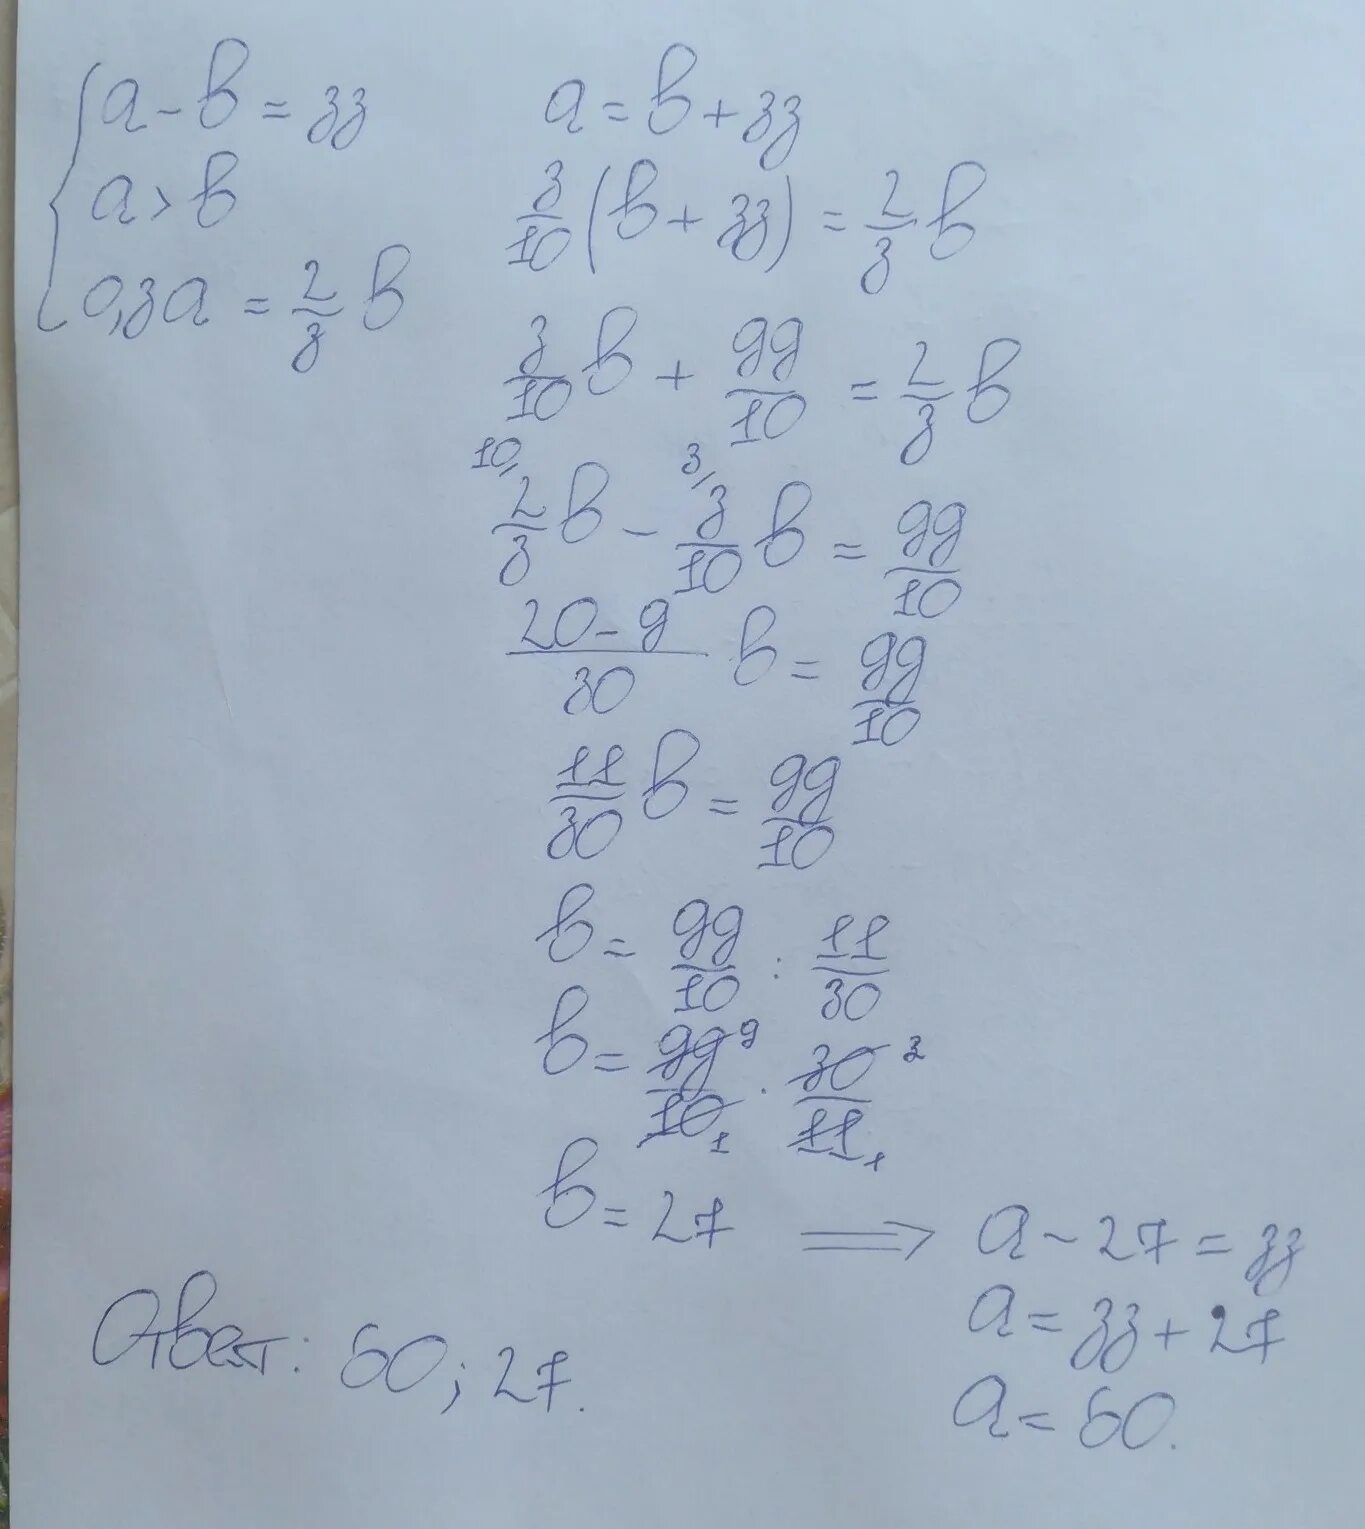 a - b = 33
a > b
0,3a = 2/3 b
a = b + 33
3/10 (b + 33) = 2/3 b
3/10 b + 99/10 = 2/3 b
10/ 2/3 b - 3/ 3/10 b = 99/10
20 - 9/30 b = 99/10
11/30 b = 99/10
b = 99/10 : 11/30
b = 99 9/10 1 · 30 3/11 1
b = 27 ⟹ a - 27 = 33
a = 33 + 27
a = 60.
Ответ: 60; 27.